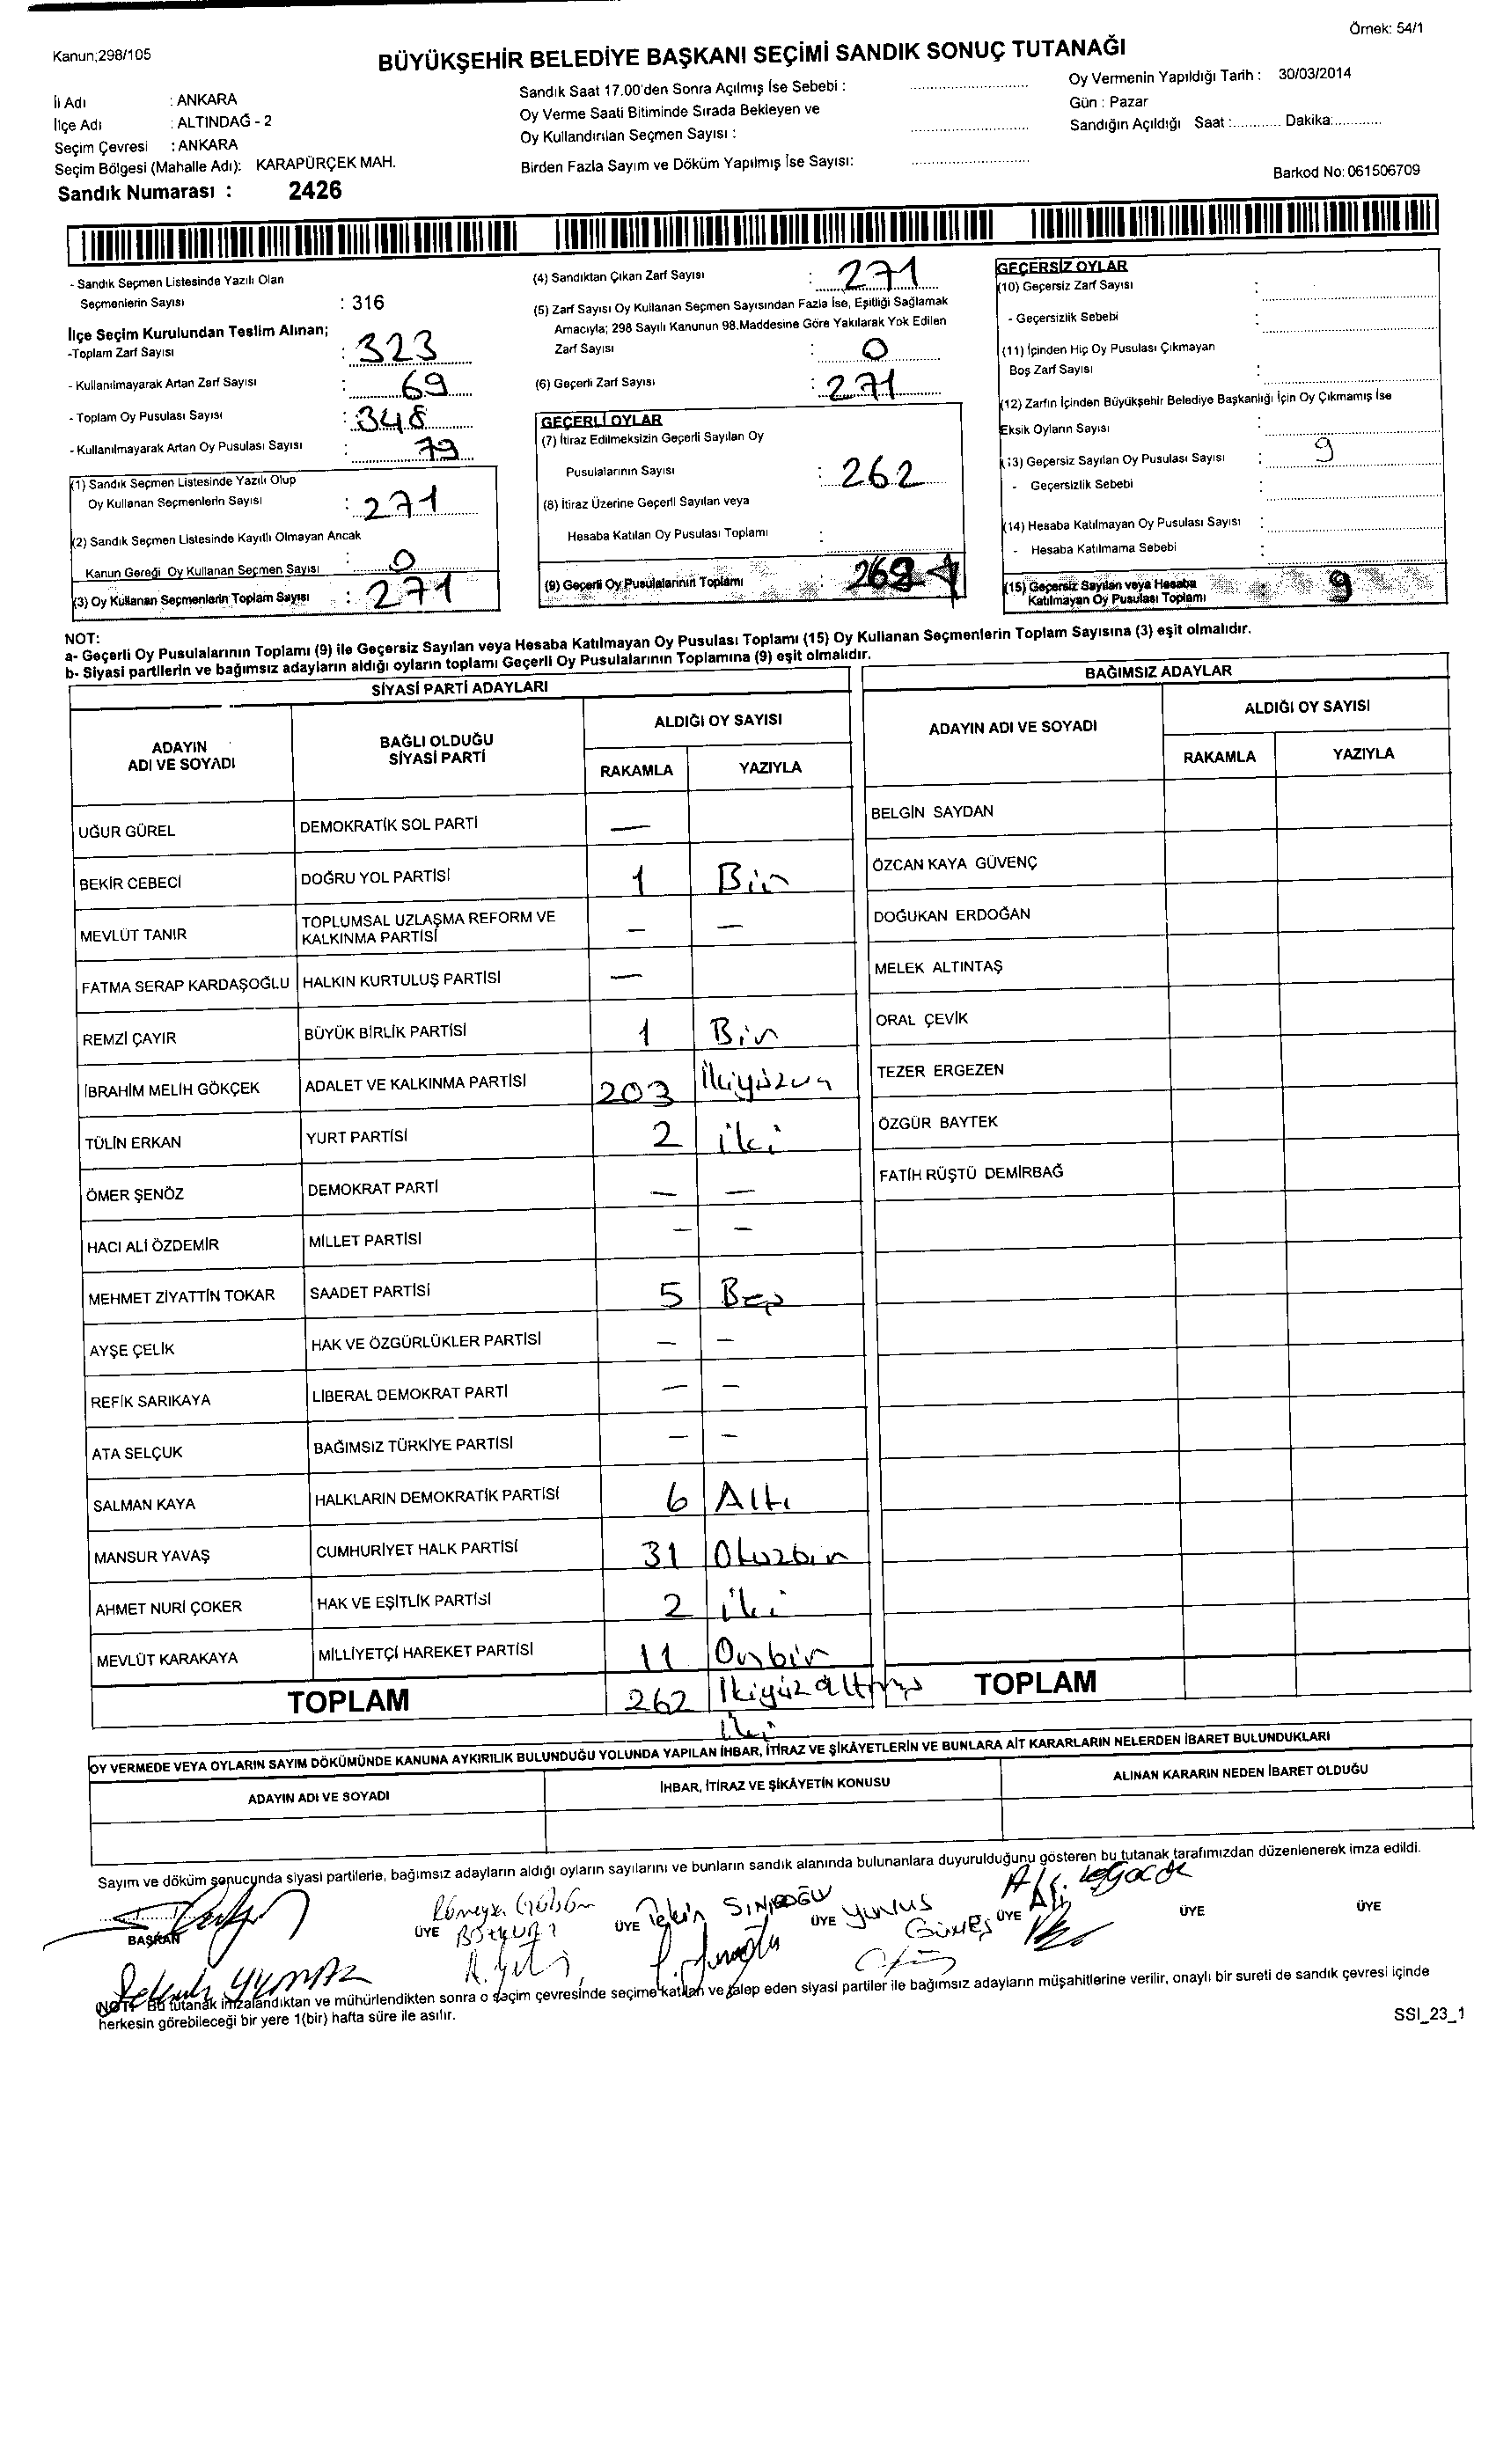 Örnek: 54/1
Kanun;298/105
BÜYÜKŞEHİR BELEDİYE BAŞKANI SEÇİMİ SANDIK SONUÇ TUTANAĞI
İl Adı : ANKARA
İlçe Adı : ALTINDAĞ - 2
Seçim Çevresi : ANKARA
Seçim Bölgesi (Mahalle Adı): KARAPÜRÇEK MAH.
Sandık Numarası : 2426
Sandık Saat 17.00'den Sonra Açılmış İse Sebebi :
Oy Verme Saati Bitiminde Sırada Bekleyen ve
Oy Kullandırılan Seçmen Sayısı :
Birden Fazla Sayım ve Döküm Yapılmış İse Sayısı:
Oy Vermenin Yapıldığı Tarih : 30/03/2014
Gün : Pazar
Sandığın Açıldığı Saat :............ Dakika:............
Barkod No: 061506709
- Sandık Seçmen Listesinde Yazılı Olan
Seçmenlerin Sayısı : 316
İlçe Seçim Kurulundan Teslim Alınan;
-Toplam Zarf Sayısı : 323
- Kullanılmayarak Artan Zarf Sayısı : 69
- Toplam Oy Pusulası Sayısı : 348
- Kullanılmayarak Artan Oy Pusulası Sayısı : 79
(1) Sandık Seçmen Listesinde Yazılı Olup
Oy Kullanan Seçmenlerin Sayısı : 271
(2) Sandık Seçmen Listesinde Kayıtlı Olmayan Ancak
Kanun Gereği Oy Kullanan Seçmen Sayısı : 0
(3) Oy Kullanan Seçmenlerin Toplam Sayısı : 271
(4) Sandıktan Çıkan Zarf Sayısı : 271
(5) Zarf Sayısı Oy Kullanan Seçmen Sayısından Fazla İse, Eşitliği Sağlamak
Amacıyla; 298 Sayılı Kanunun 98.Maddesine Göre Yakılarak Yok Edilen
Zarf Sayısı : 0
(6) Geçerli Zarf Sayısı : 271
GEÇERLİ OYLAR
(7) İtiraz Edilmeksizin Geçerli Sayılan Oy
Pusulalarının Sayısı : 262
(8) İtiraz Üzerine Geçerli Sayılan veya
Hesaba Katılan Oy Pusulası Toplamı :
(9) Geçerli Oy Pusulalarının Toplamı :
GEÇERSİZ OYLAR
(10) Geçersiz Zarf Sayısı :
- Geçersizlik Sebebi :
(11) İçinden Hiç Oy Pusulası Çıkmayan
Boş Zarf Sayısı :
(12) Zarfın İçinden Büyükşehir Belediye Başkanlığı İçin Oy Çıkmamış İse
Eksik Oyların Sayısı :
(13) Geçersiz Sayılan Oy Pusulası Sayısı : 9
- Geçersizlik Sebebi :
(14) Hesaba Katılmayan Oy Pusulası Sayısı :
- Hesaba Katılmama Sebebi :
(15) Geçersiz Sayılan veya Hesaba
Katılmayan Oy Pusulası Toplamı : 9
NOT:
a- Geçerli Oy Pusulalarının Toplamı (9) ile Geçersiz Sayılan veya Hesaba Katılmayan Oy Pusulası Toplamı (15) Oy Kullanan Seçmenlerin Toplam Sayısına (3) eşit olmalıdır.
b- Siyasi partilerin ve bağımsız adayların aldığı oyların toplamı Geçerli Oy Pusulalarının Toplamına (9) eşit olmalıdır.
SİYASİ PARTİ ADAYLARI
ADAYIN ADI VE SOYADI
BAĞLI OLDUĞU SİYASİ PARTİ
ALDIĞI OY SAYISI
RAKAMLA YAZIYLA
UĞUR GÜREL DEMOKRATİK SOL PARTİ —
BEKİR CEBECİ DOĞRU YOL PARTİSİ 1 Bir
MEVLÜT TANIR TOPLUMSAL UZLAŞMA REFORM VE KALKINMA PARTİSİ — —
FATMA SERAP KARDAŞOĞLU HALKIN KURTULUŞ PARTİSİ —
REMZİ ÇAYIR BÜYÜK BİRLİK PARTİSİ 1 Bir
İBRAHİM MELİH GÖKÇEK ADALET VE KALKINMA PARTİSİ 203
TÜLİN ERKAN YURT PARTİSİ 2 iki
ÖMER ŞENÖZ DEMOKRAT PARTİ — —
HACI ALİ ÖZDEMİR MİLLET PARTİSİ — —
MEHMET ZİYATTİN TOKAR SAADET PARTİSİ 5 Beş
AYŞE ÇELİK HAK VE ÖZGÜRLÜKLER PARTİSİ — —
REFİK SARIKAYA LİBERAL DEMOKRAT PARTİ — —
ATA SELÇUK BAĞIMSIZ TÜRKİYE PARTİSİ — —
SALMAN KAYA HALKLARIN DEMOKRATİK PARTİSİ 6 Altı
MANSUR YAVAŞ CUMHURİYET HALK PARTİSİ 31 Otuzbir
AHMET NURİ ÇOKER HAK VE EŞİTLİK PARTİSİ 2 iki
MEVLÜT KARAKAYA MİLLİYETÇİ HAREKET PARTİSİ 11 Onbir
TOPLAM 262 İkiyüzaltmış
iki
BAĞIMSIZ ADAYLAR
ADAYIN ADI VE SOYADI
ALDIĞI OY SAYISI
RAKAMLA YAZIYLA
BELGİN SAYDAN
ÖZCAN KAYA GÜVENÇ
DOĞUKAN ERDOĞAN
MELEK ALTINTAŞ
ORAL ÇEVİK
TEZER ERGEZEN
ÖZGÜR BAYTEK
FATİH RÜŞTÜ DEMİRBAĞ
TOPLAM
OY VERMEDE VEYA OYLARIN SAYIM DÖKÜMÜNDE KANUNA AYKIRILIK BULUNDUĞU YOLUNDA YAPILAN İHBAR, İTİRAZ VE ŞİKÂYETLERİN VE BUNLARA AİT KARARLARIN NELERDEN İBARET BULUNDUKLARI
ADAYIN ADI VE SOYADI İHBAR, İTİRAZ VE ŞİKÂYETİN KONUSU ALINAN KARARIN NEDEN İBARET OLDUĞU
Sayım ve döküm sonucunda siyasi partilerle, bağımsız adayların aldığı oyların sayılarını ve bunların sandık alanında bulunanlara duyurulduğunu gösteren bu tutanak tarafımızdan düzenlenerek imza edildi.
BAŞKAN
YILMAZ
ÜYE
ÜYE Tekin
ÜYE YUNUS
GÜNEŞ
ÜYE
ÜYE
ÜYE
(NOT: Bu tutanak imzalandıktan ve mühürlendikten sonra o seçim çevresinde seçime katılan ve talep eden siyasi partiler ile bağımsız adayların müşahitlerine verilir, onaylı bir sureti de sandık çevresi içinde
herkesin görebileceği bir yere 1(bir) hafta süre ile asılır.
SSI_23_1